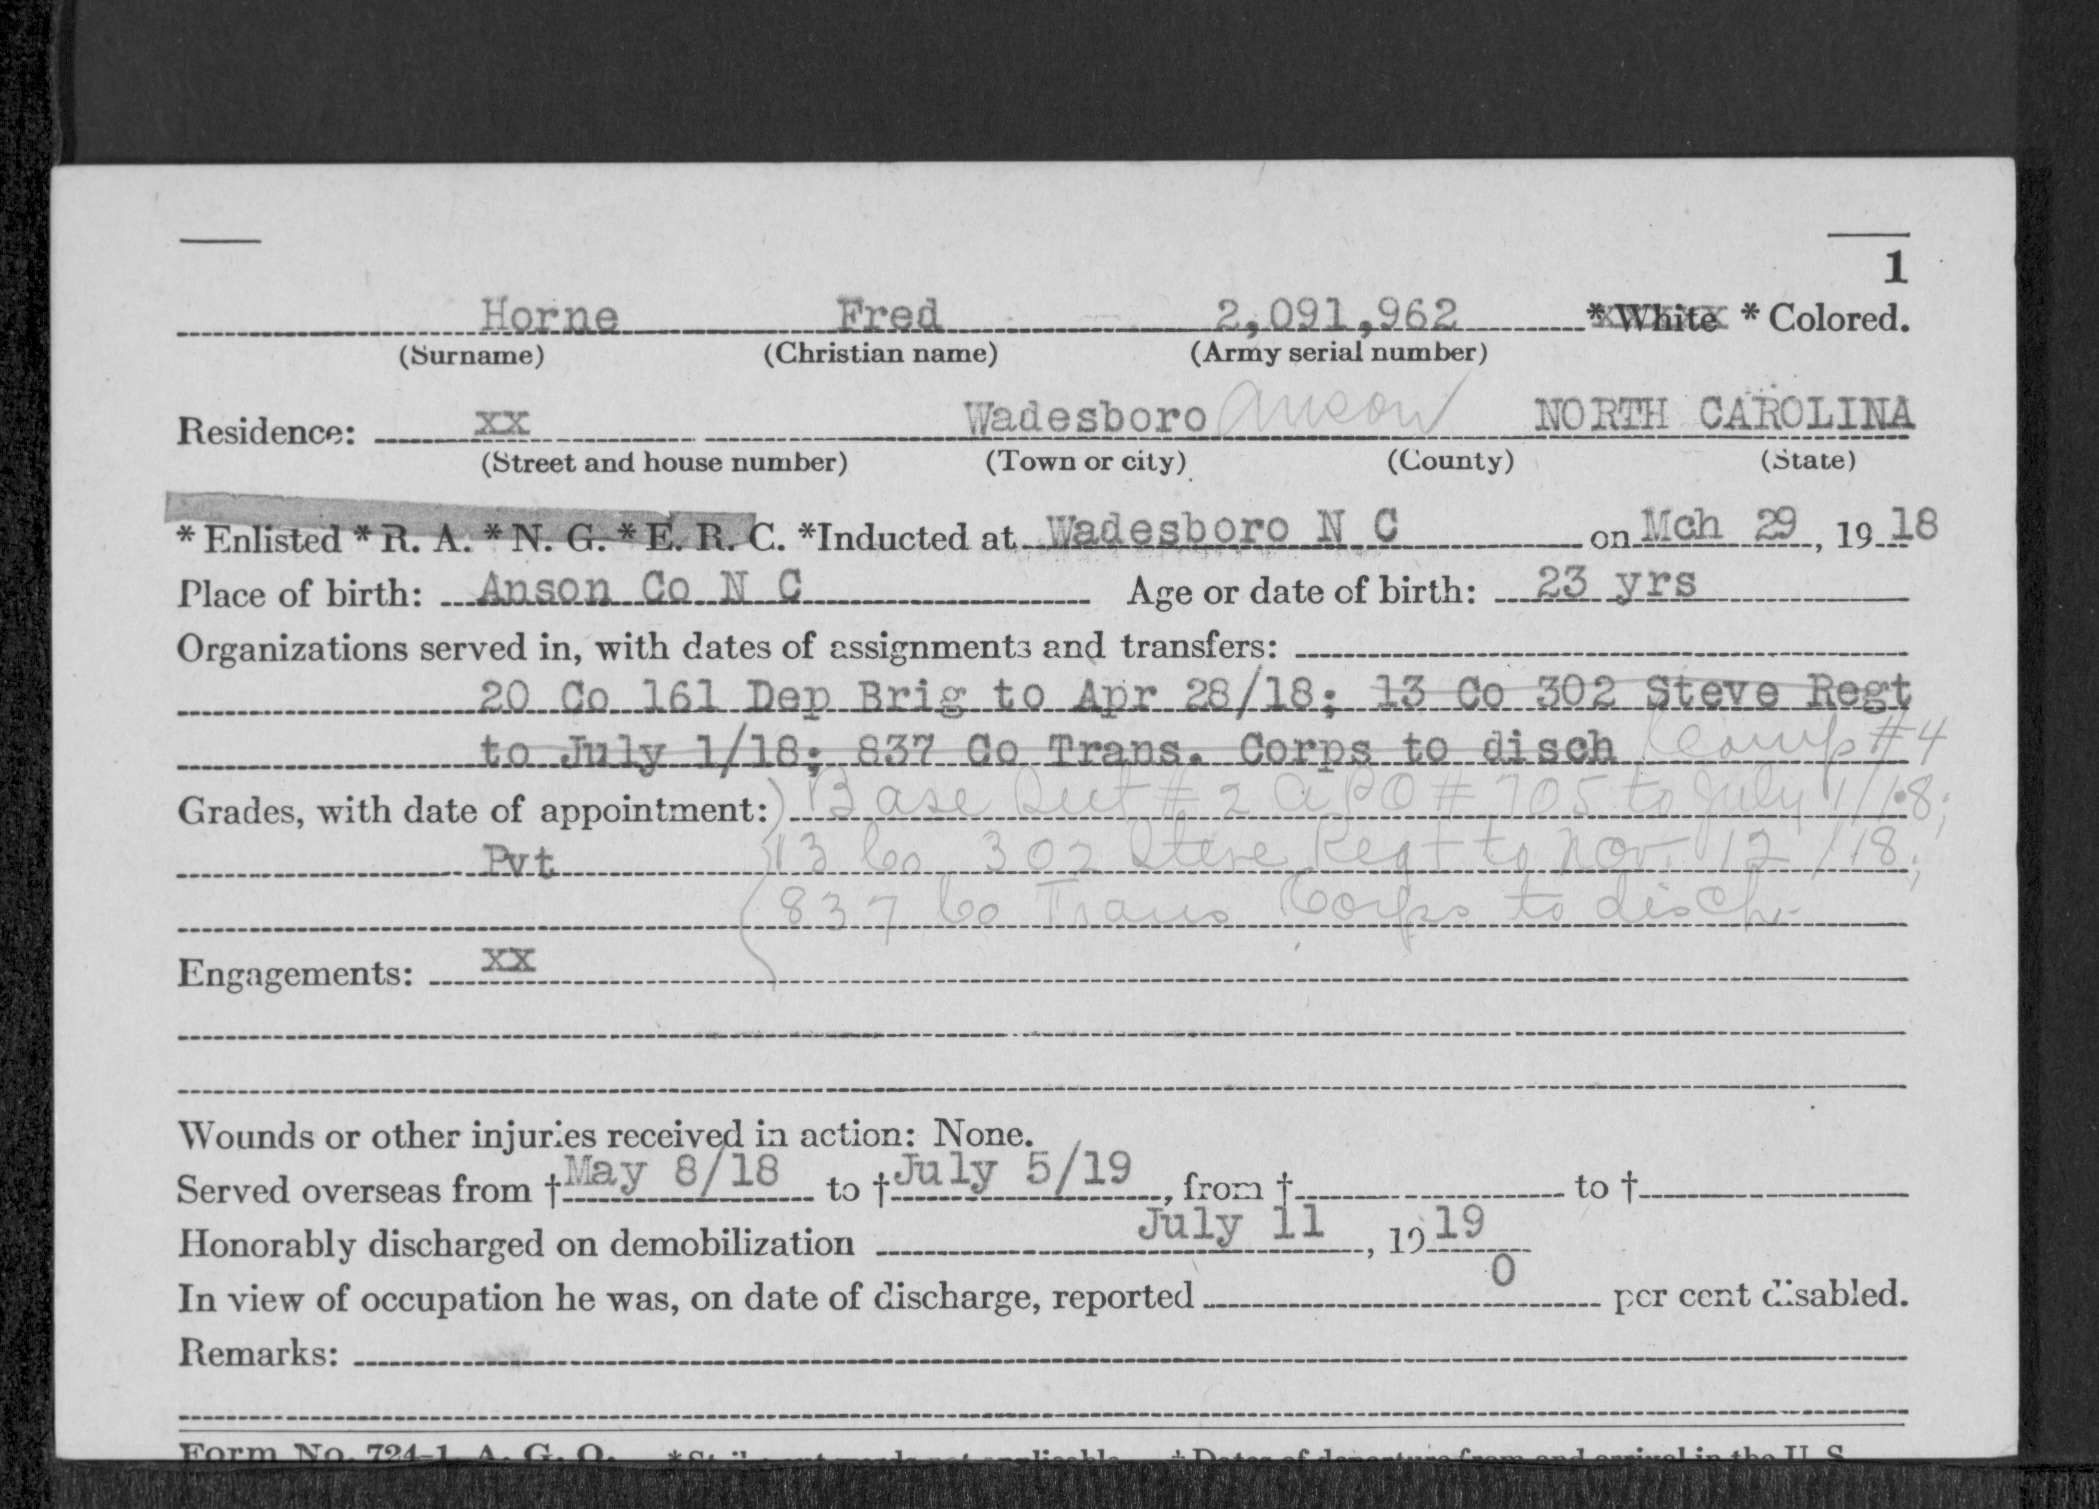 1
Horne Fred 2,091,962 * White * Colored.
(Surname) (Christian name) (Army serial number)
Residence: xx Wadesboro Anson NORTH CAROLINA
(Street and house number) (Town or city) (County) (State)
* Enlisted * R. A. * N. G. * E. R. C. *Inducted at Wadesboro N C on Mch 29, 19 18
Place of birth: Anson Co N C Age or date of birth: 23 yrs
Organizations served in, with dates of assignments and transfers:
20 Co 161 Dep Brig to Apr 28/18; 13 Co 302 Steve Regt
to July 1/18; 837 Co Trans. Corps to disch Comp #4
Grades, with date of appointment: Base Sect #2 APO #705 to July 1/18;
Pvt 13 Co 302 Steve Regt to Nov 12/18;
837 Co Trans Corps to disch.
Engagements: xx
Wounds or other injuries received in action: None.
Served overseas from † May 8/18 to † July 5/19, from † to †
Honorably discharged on demobilization July 11, 19 19
In view of occupation he was, on date of discharge, reported 0 per cent disabled.
Remarks:
Form No. 724-1, A. G. O. *Strike out words not applicable. † Dates of departure from and arrival in the U. S.